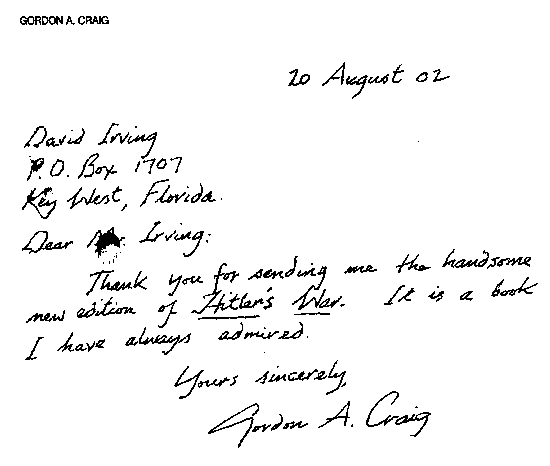 GORDON A. CRAIG
20 August 02
David Irving
P.O. Box 1707
Key West, Florida.
Dear Irving:
Thank you for sending me the handsome
new edition of Hitler's War. It is a book
I have always admired.
Yours sincerely,
Gordon A. Craig